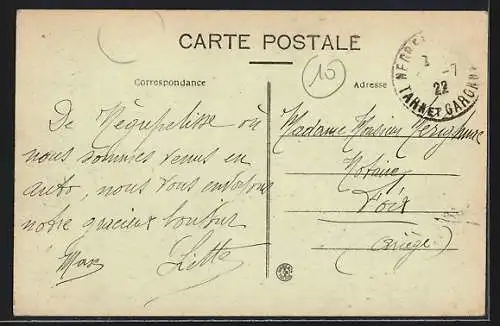 CARTE POSTALE
Correspondance
Adresse
10
NEGRE
7
22
TARN ET GARONNE
De Nègrepelisse où
nous sommes venus en
auto, nous vous envoyons
notre gracieux bonjour
Max Lette
Madame Monsieur
Notaire
Foix
(Ariège)